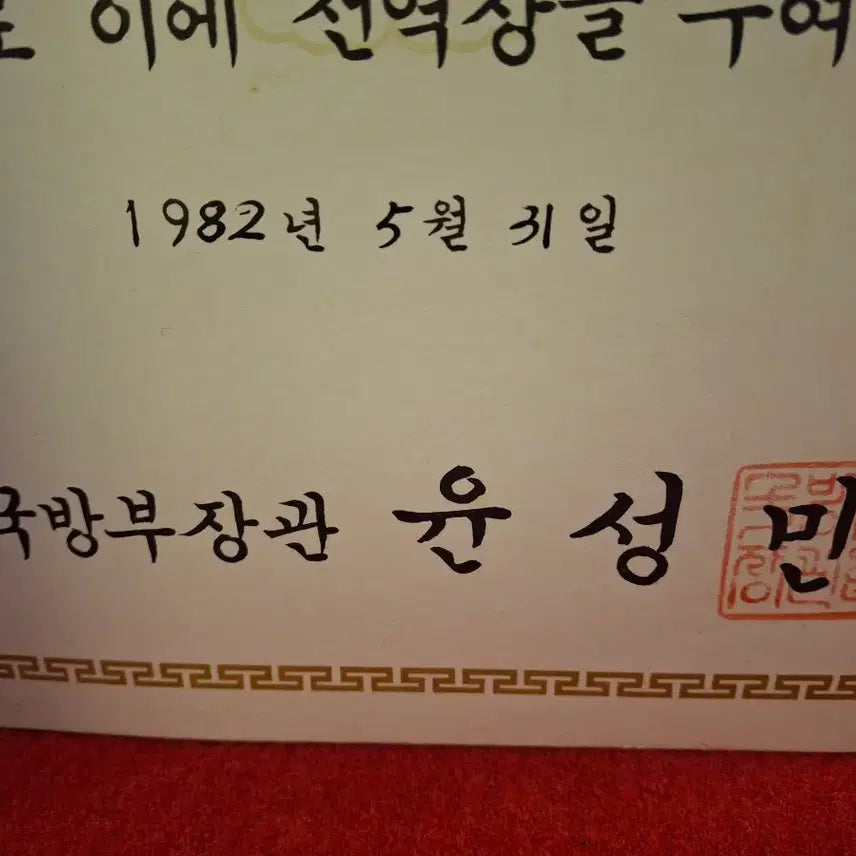 이에 전역장을 수여
1982년 5월 31일
국방부장관 윤성민